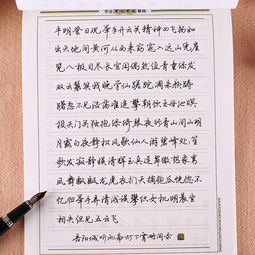 平明登日观举手开云关精神四飞扬如
出天地间黄河从西来窈窕入远山凭崖
览八极目尽长空闲偶然值青童绿发
双云鬟笑我晚学仙蹉跎凋朱颜踌
躇忽不见浩荡难追攀朝饮王母池暝
投天门关独抱绿绮琴夜行青山间山明
月露白夜静松风歇仙人游碧峰处处笙
歌发寂静娱清辉玉真连翠微想象鸾
凤舞飘飖龙虎衣扪天摘匏瓜恍惚不
忆归举手弄清浅误攀织女机明晨坐
相失但见五云飞
岳阳城听雨斋灯下